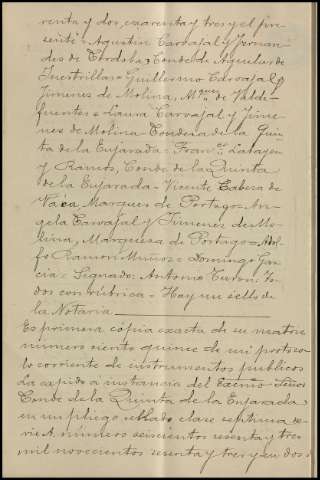 renta y dos, cuarenta y tres y el pre
sente = Agustin Carvajal y Fernan
des de Córdoba, Conde de Aguilar de
Inestrillas = Guillermo Carvajal y
Jimenes de Molina, Mqués de Valde
fuentes = Laura Carvajal y Jime
nes de Molina = Condesa de la Quin
ta de la Enjarada = Franco
y Ramos, Conde de la Quinta
de la Enjarada = Vicente Cabeza de
Vaca Marques de Portago = An
gela Carvajal y Jimenes de Mo
lina, Marquesa de Portago = Adol
fo Ramon Muñoz = Domingo Gar
cia = Signado: Antonio Turon: To
dos con rúbrica = Hay un sello de
la Notaria
Es primera copia exacta de su matriz
número ciento quince de mi protoco
lo corriente de instrumentos publicos
La expido a instancia del Excmo Señor
Conde de la Quinta de la Enjarada
en un pliego sellado clase septima se
rie A. número seiscientos sesenta y tres
mil novecientos sesenta y tres y en dos d